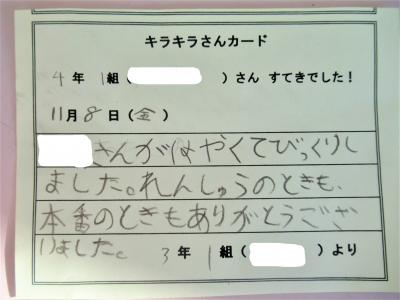 キラキラさんカード
4年 1組( )さん すてきでした!
11月8日(金)
さんがはやくてびっくりし
ました。れんしゅうのときも、
本番のときもありがとうござ
いました。 3年 1組( )より